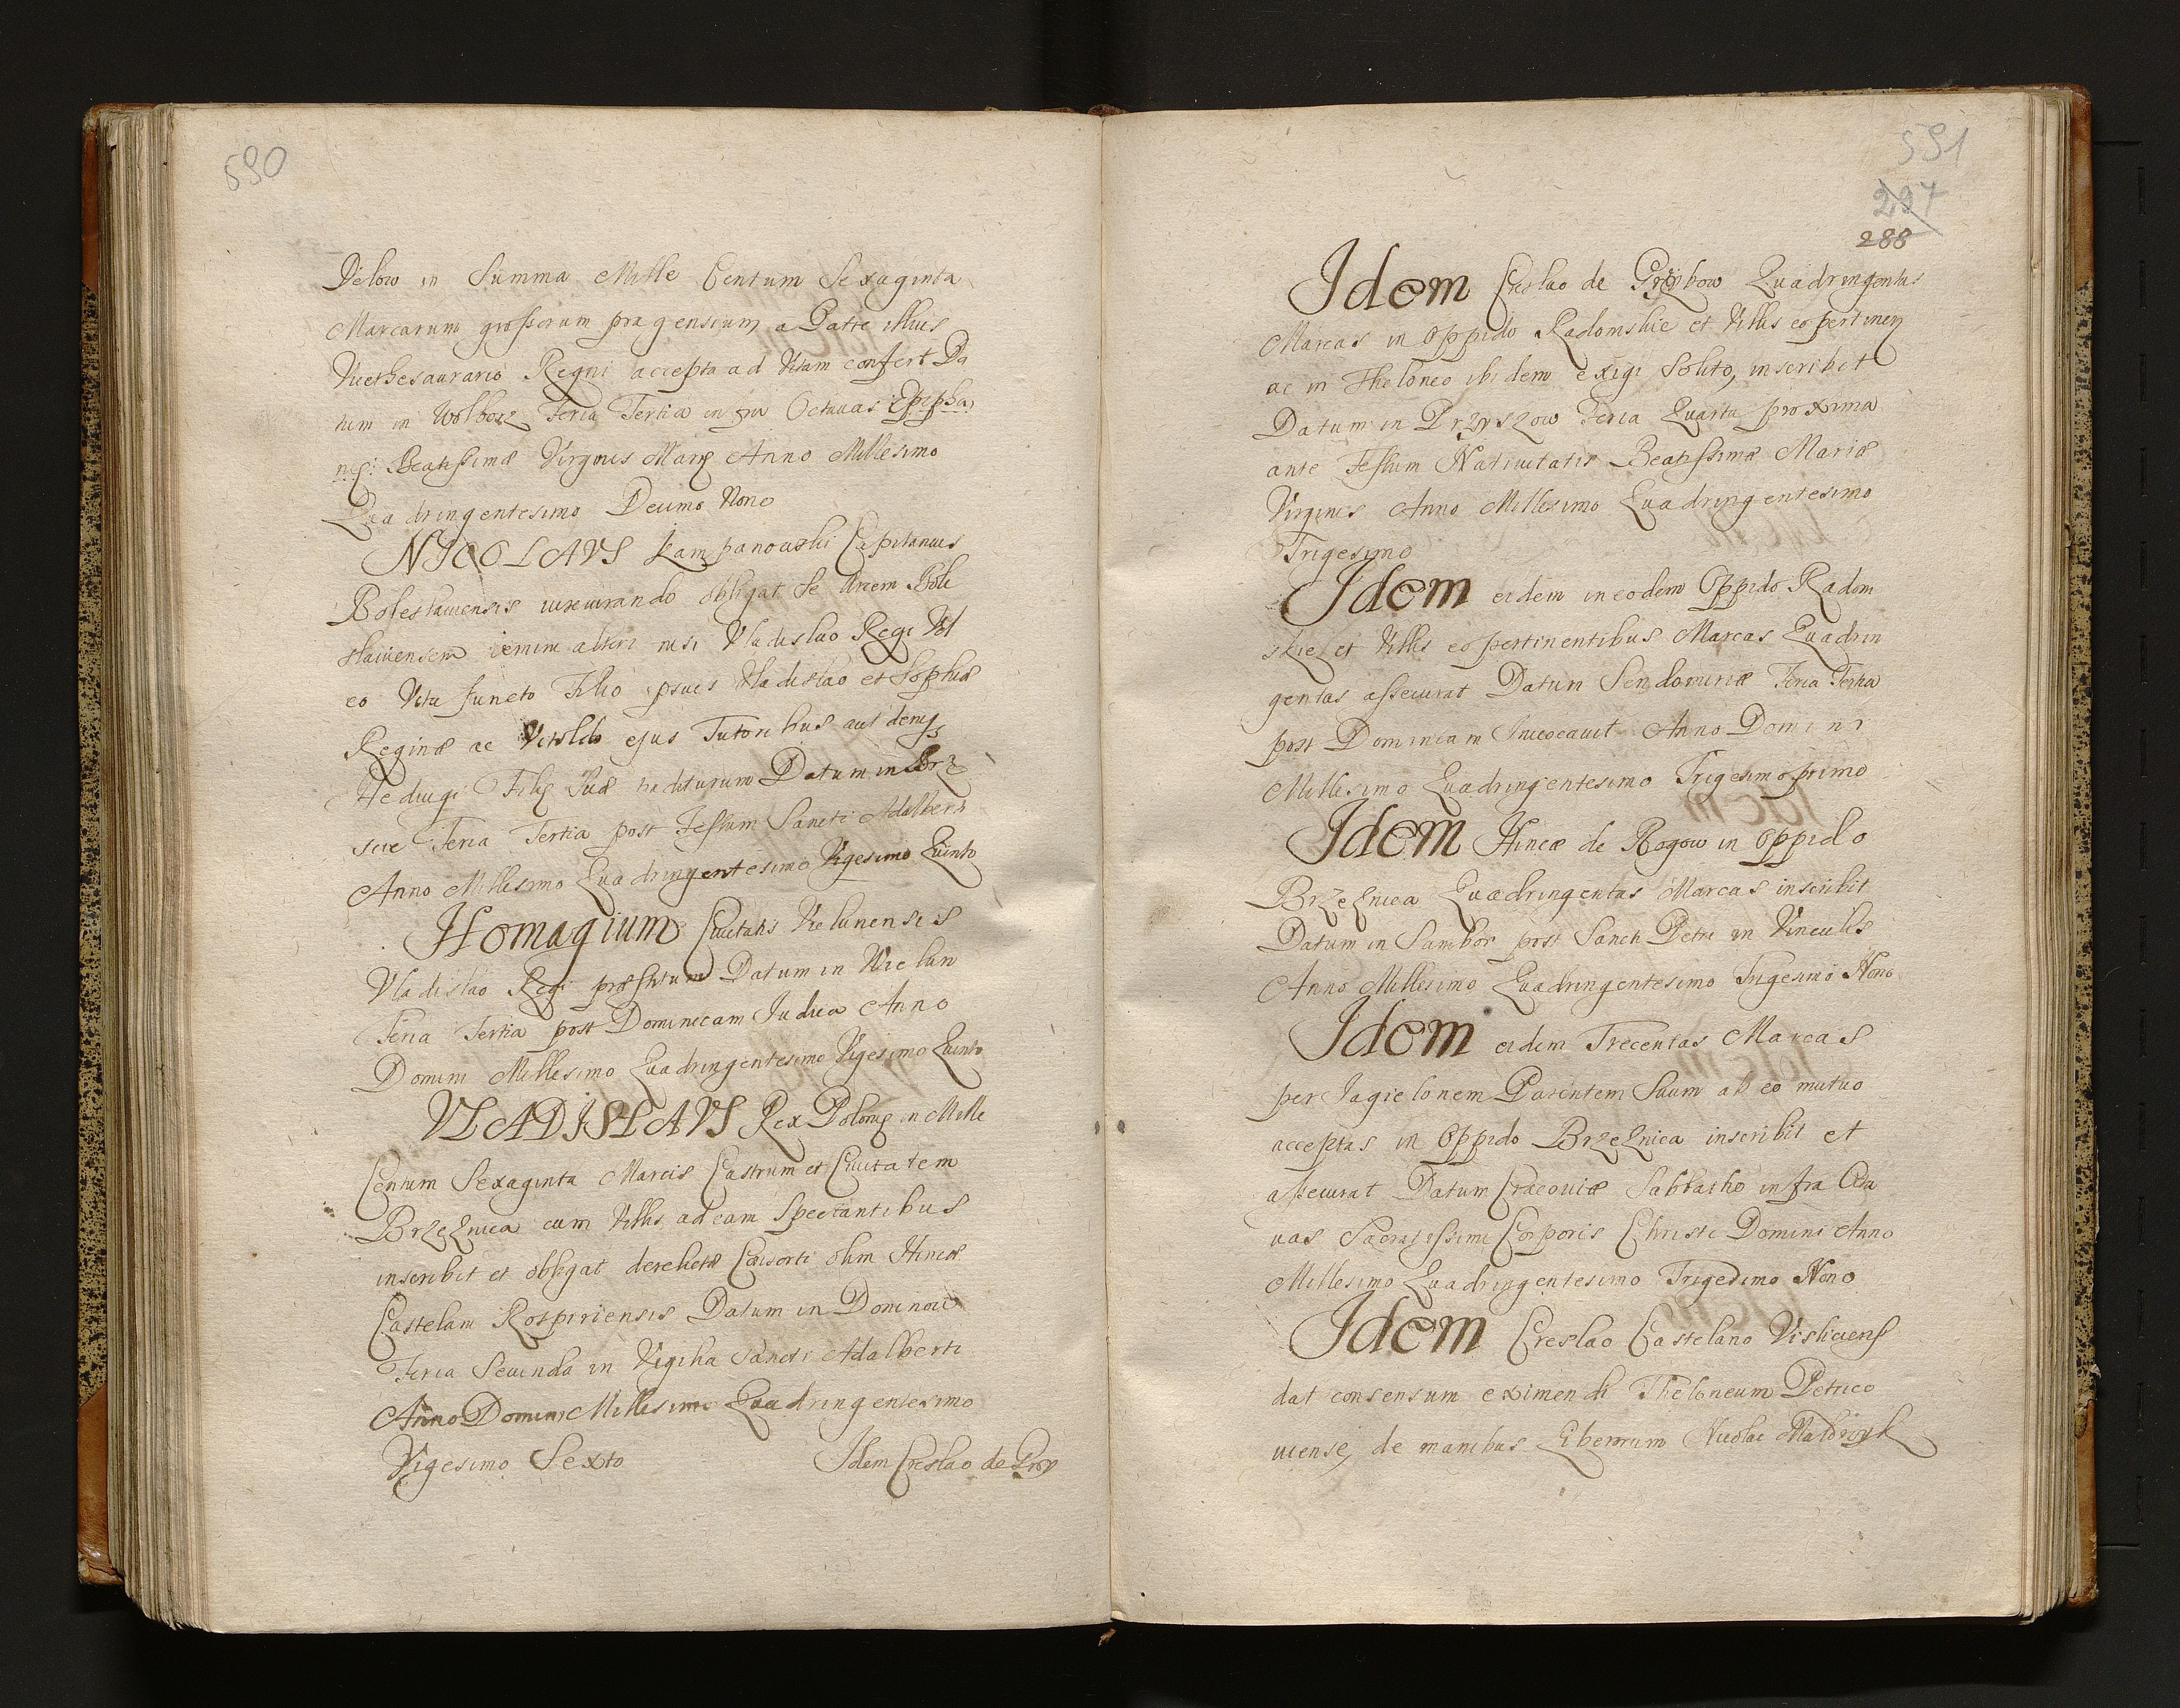 590
Delow in Summa Mille Centum Sexaginta
Marcarum grossorum pragensium a Patre illius
Vicethesaurario Regni accepta ad Vitam confert Da
tum in Wolborz Feria Tertia infra Octavas Epipha
Beatissimæ Virginis Mariæ Anno Millesimo
Quadringentesimo Decimo Nono
NICOLAVS Kampanowski Capitaneus
Boleslauiensis iureiurando obligat Se Arcem Bole
slauiensem nemini alteri nisi Vladislao Regi Vel
eo Vita functo Filio ipsius Vladislao et Sophiæ
Reginæ ac Vitoldo ejus Tutoribus aut deniq
Hedwigi Filiæ Suæ traditurum Datum in Brz
scie Feria Tertia post Festum Sancti Adalberti
Anno Millesimo Quadringentesimo Vigesimo Quinto
Homagium Civitatis Vielunensis
Vladislao Regi præstitum Datum in Wielun
Feria Tertia post Dominicam Judica Anno
Domini Millesimo Quadringentesimo Vigesimo Quinto
VLADISLAVS Rex Poloniæ in Mille
Centum Sexaginta Marcis Castrum et Civitatem
Brzeznica cum Villis ad eam Spectantibus
inscribit et obligat derelictæ Consorti olim Hincæ
Castelani Rospiriensis Datum in Dominow
Feria Secunda in Vigilia Sancti Adalberti
Anno Domini Millesimo Quadringentesimo
Vigesimo Sexto
Idem Creslao de Grzy
591
297
288
Idem Creslao de Grzybow Quadringentas
Marcas in Oppido Radomskie et Villis eo pertinen
ac in Theloneo ibidem exigi Solito, inscribit
Datum in Przyszow Feria Quarta proxima
ante Festum Nativitatis Beatissimæ Mariæ
Virginis Anno Millesimo Quadringentesimo
Trigesimo
Idem eidem in eodem Oppido Radom
skie et Villis eo pertinentibus Marcas Quadrin
gentas assecurat Datum Sendomiriæ Feria Tertia
post Dominicam Invocavit Anno Domini
Millesimo Quadringentesimo Trigesimo primo
Idem Hincæ de Rogow in Oppido
Brzeznica Quadringentas Marcas inscribit
Datum in Sambor post Sancti Petri in Vinculis
Anno Millesimo Quadringentesimo Trigesimo Nono
Idem eidem Trecentas Marcas
per Jagielonem Parentem Suum ab eo mutuo
acceptas in Oppido Brzeznica inscribit et
assecurat Datum Cracoviæ Sabbatho infra Octa
uas Sacratissimi Corporis Christi Domini Anno
Millesimo Quadringentesimo Trigesimo Nono
Idem Creslao Castelano Visliciens
dat consensum eximendi Theloneum Petrico
uiense, de manibus Liberorum Nicolai